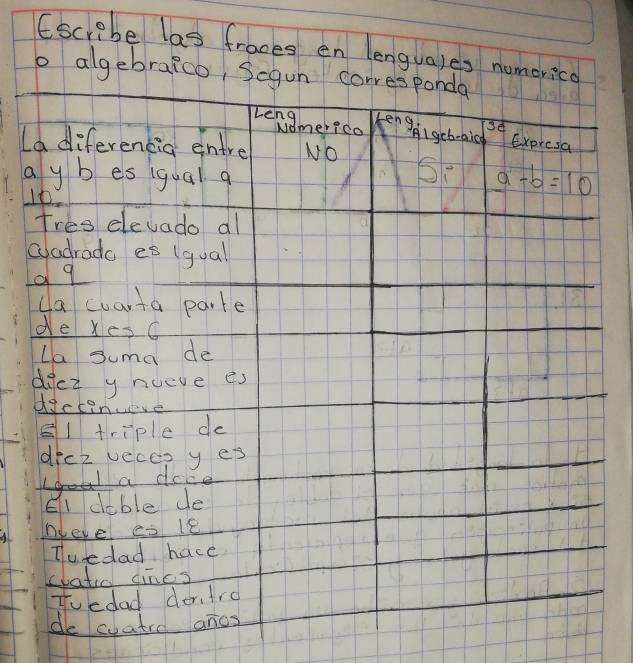 Escribe las fraces en lenguajes numerico
o algebraico, Segun corresponda
Leng Numerico
Leng. Algebraico
se Expresa
La diferencia entre
a y b es igual a
10.
NO
Si
a-b=10
tres elevado al
cuadrado es igual
a 9
La cuarta parte
de x es 6
La suma de
diez y nueve es
diecinueve
El triple de
diez veces y es
igual a doce
El doble de
nueve es 18
Tu edad hace
cuatro años
Tu edad dentro
de cuatro años